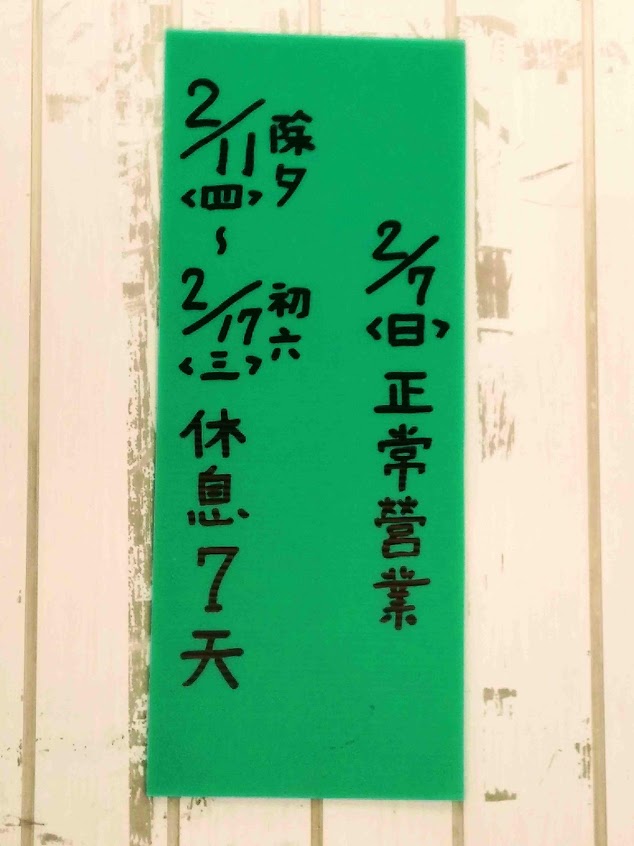 2/7<日>正常營業
2/11<四>除夕~2/17<三>初六休息7天